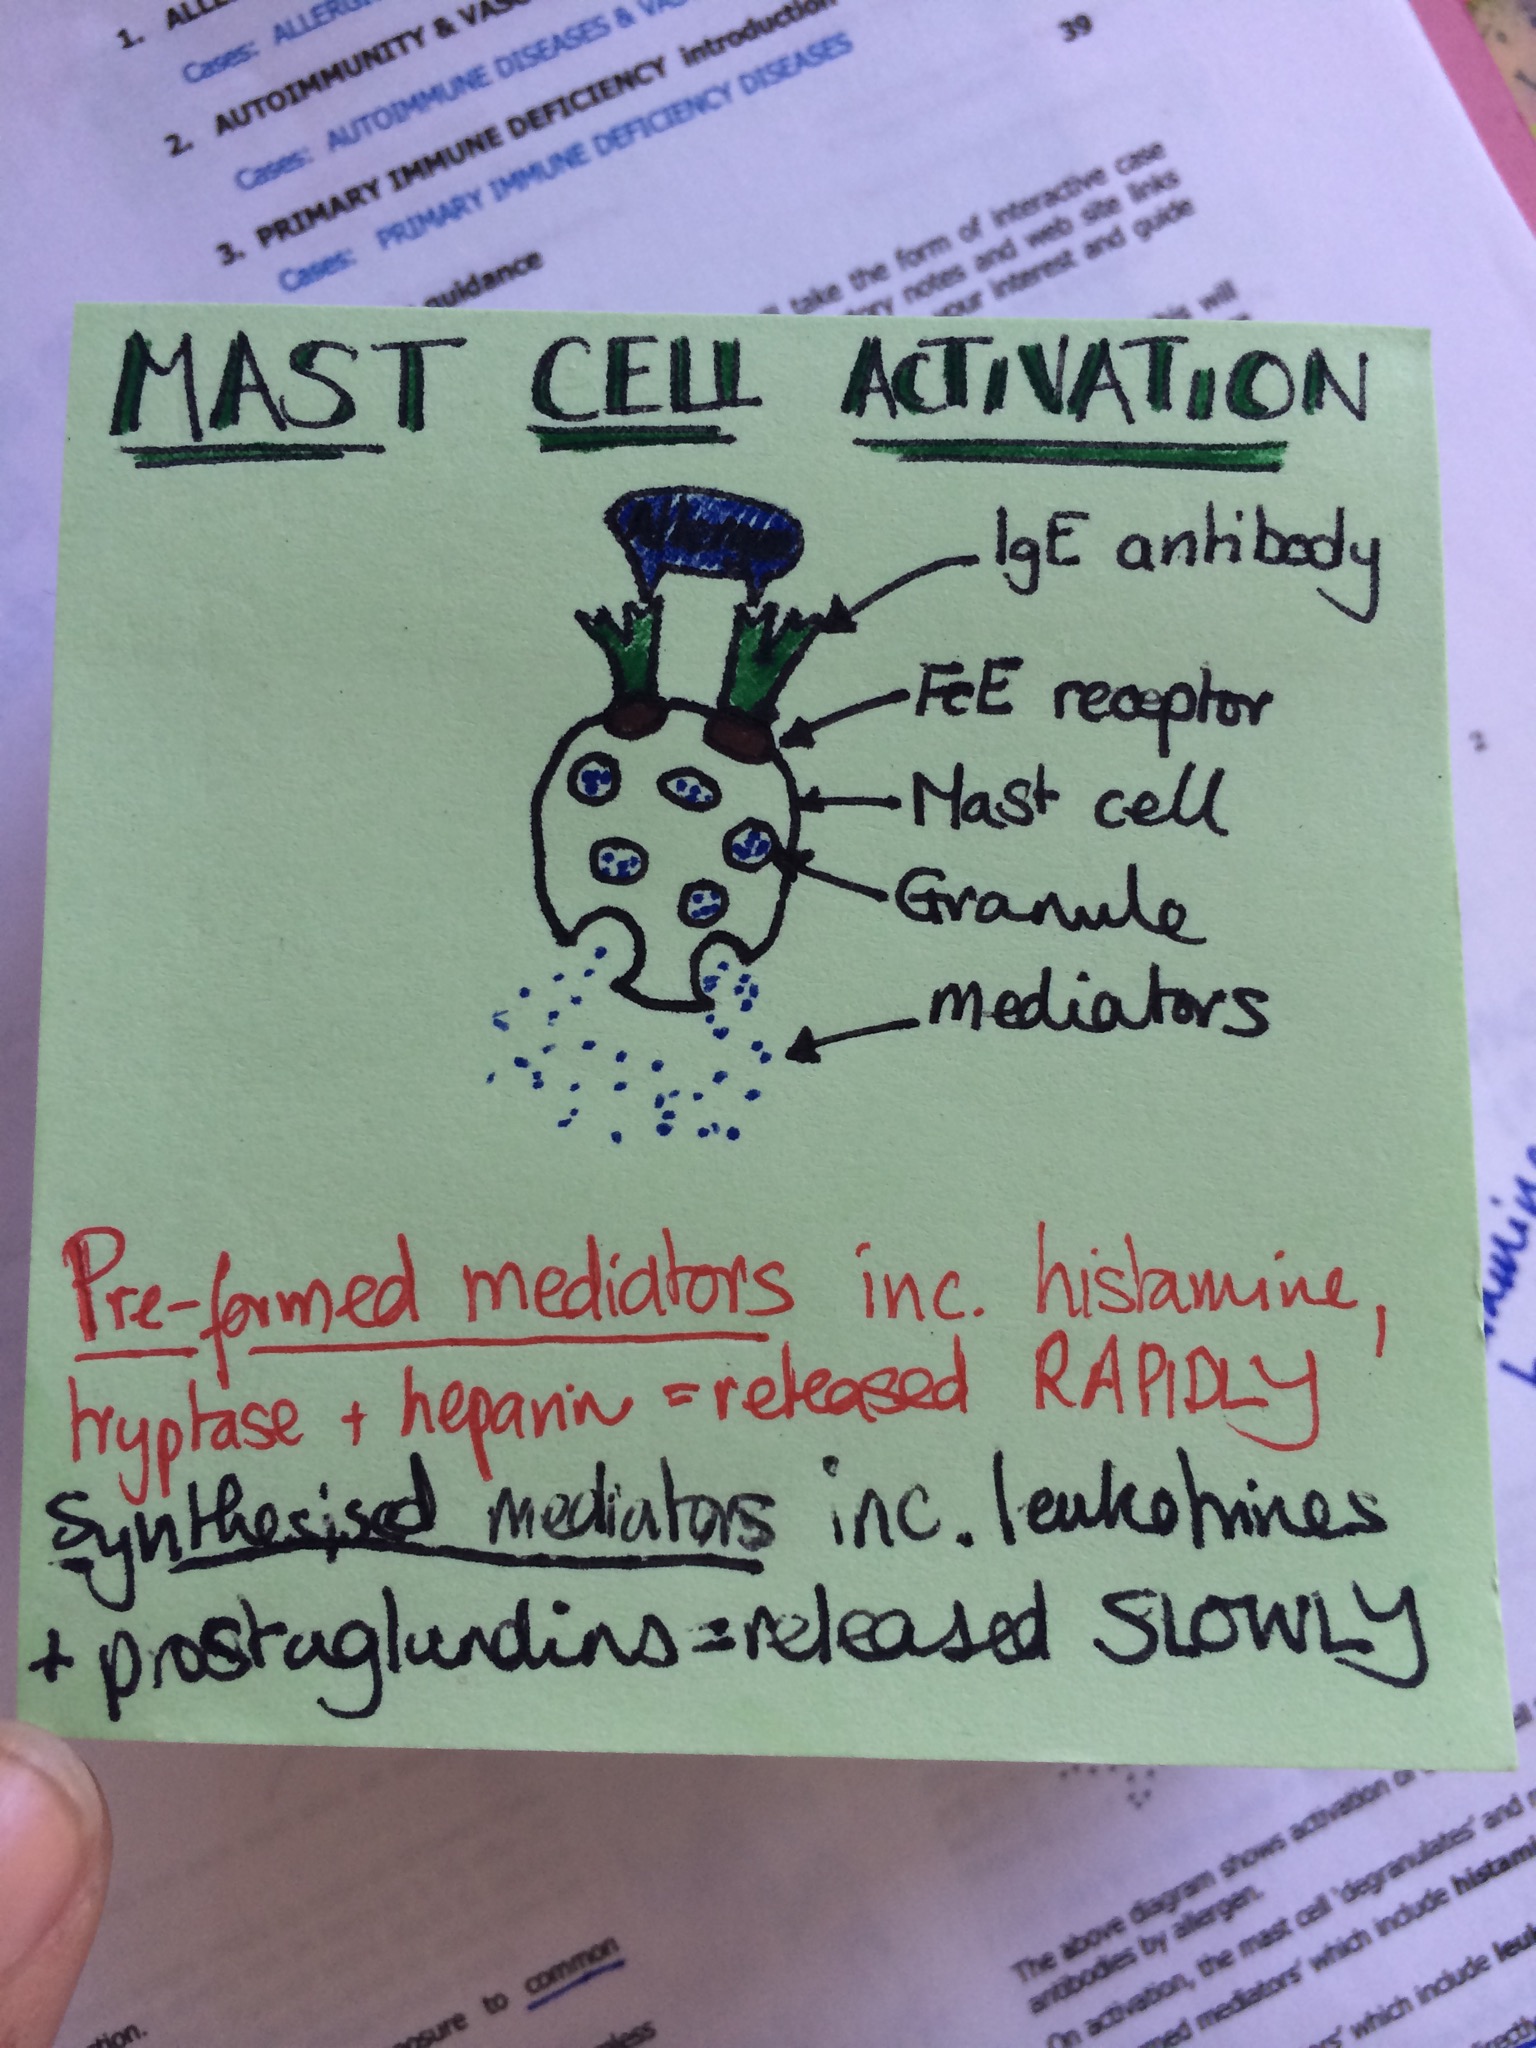 39
Cases:
2. AUTOIMMUNITY &
Cases: AUTOIMMUNE DISEASES &
3. PRIMARY IMMUNE DEFICIENCY introduction
Cases: PRIMARY IMMUNE DEFICIENCY DISEASES
guidance
take the form of interactive case
notes and web site links
your interest and guide
will
MAST CELL ACTIVATION
Allergen
IgE antibody
FcE receptor
Mast cell
Granule
mediators
2
Pre-formed mediators inc. histamine,
tryptase + heparin = released RAPIDLY
Synthesised mediators inc. leukotrines
+ prostaglandins = released SLOWLY
The above diagram shows activation
antibodies by allergen.
On activation, the mast cell 'degranulates' and
mediators' which include
which include
to common